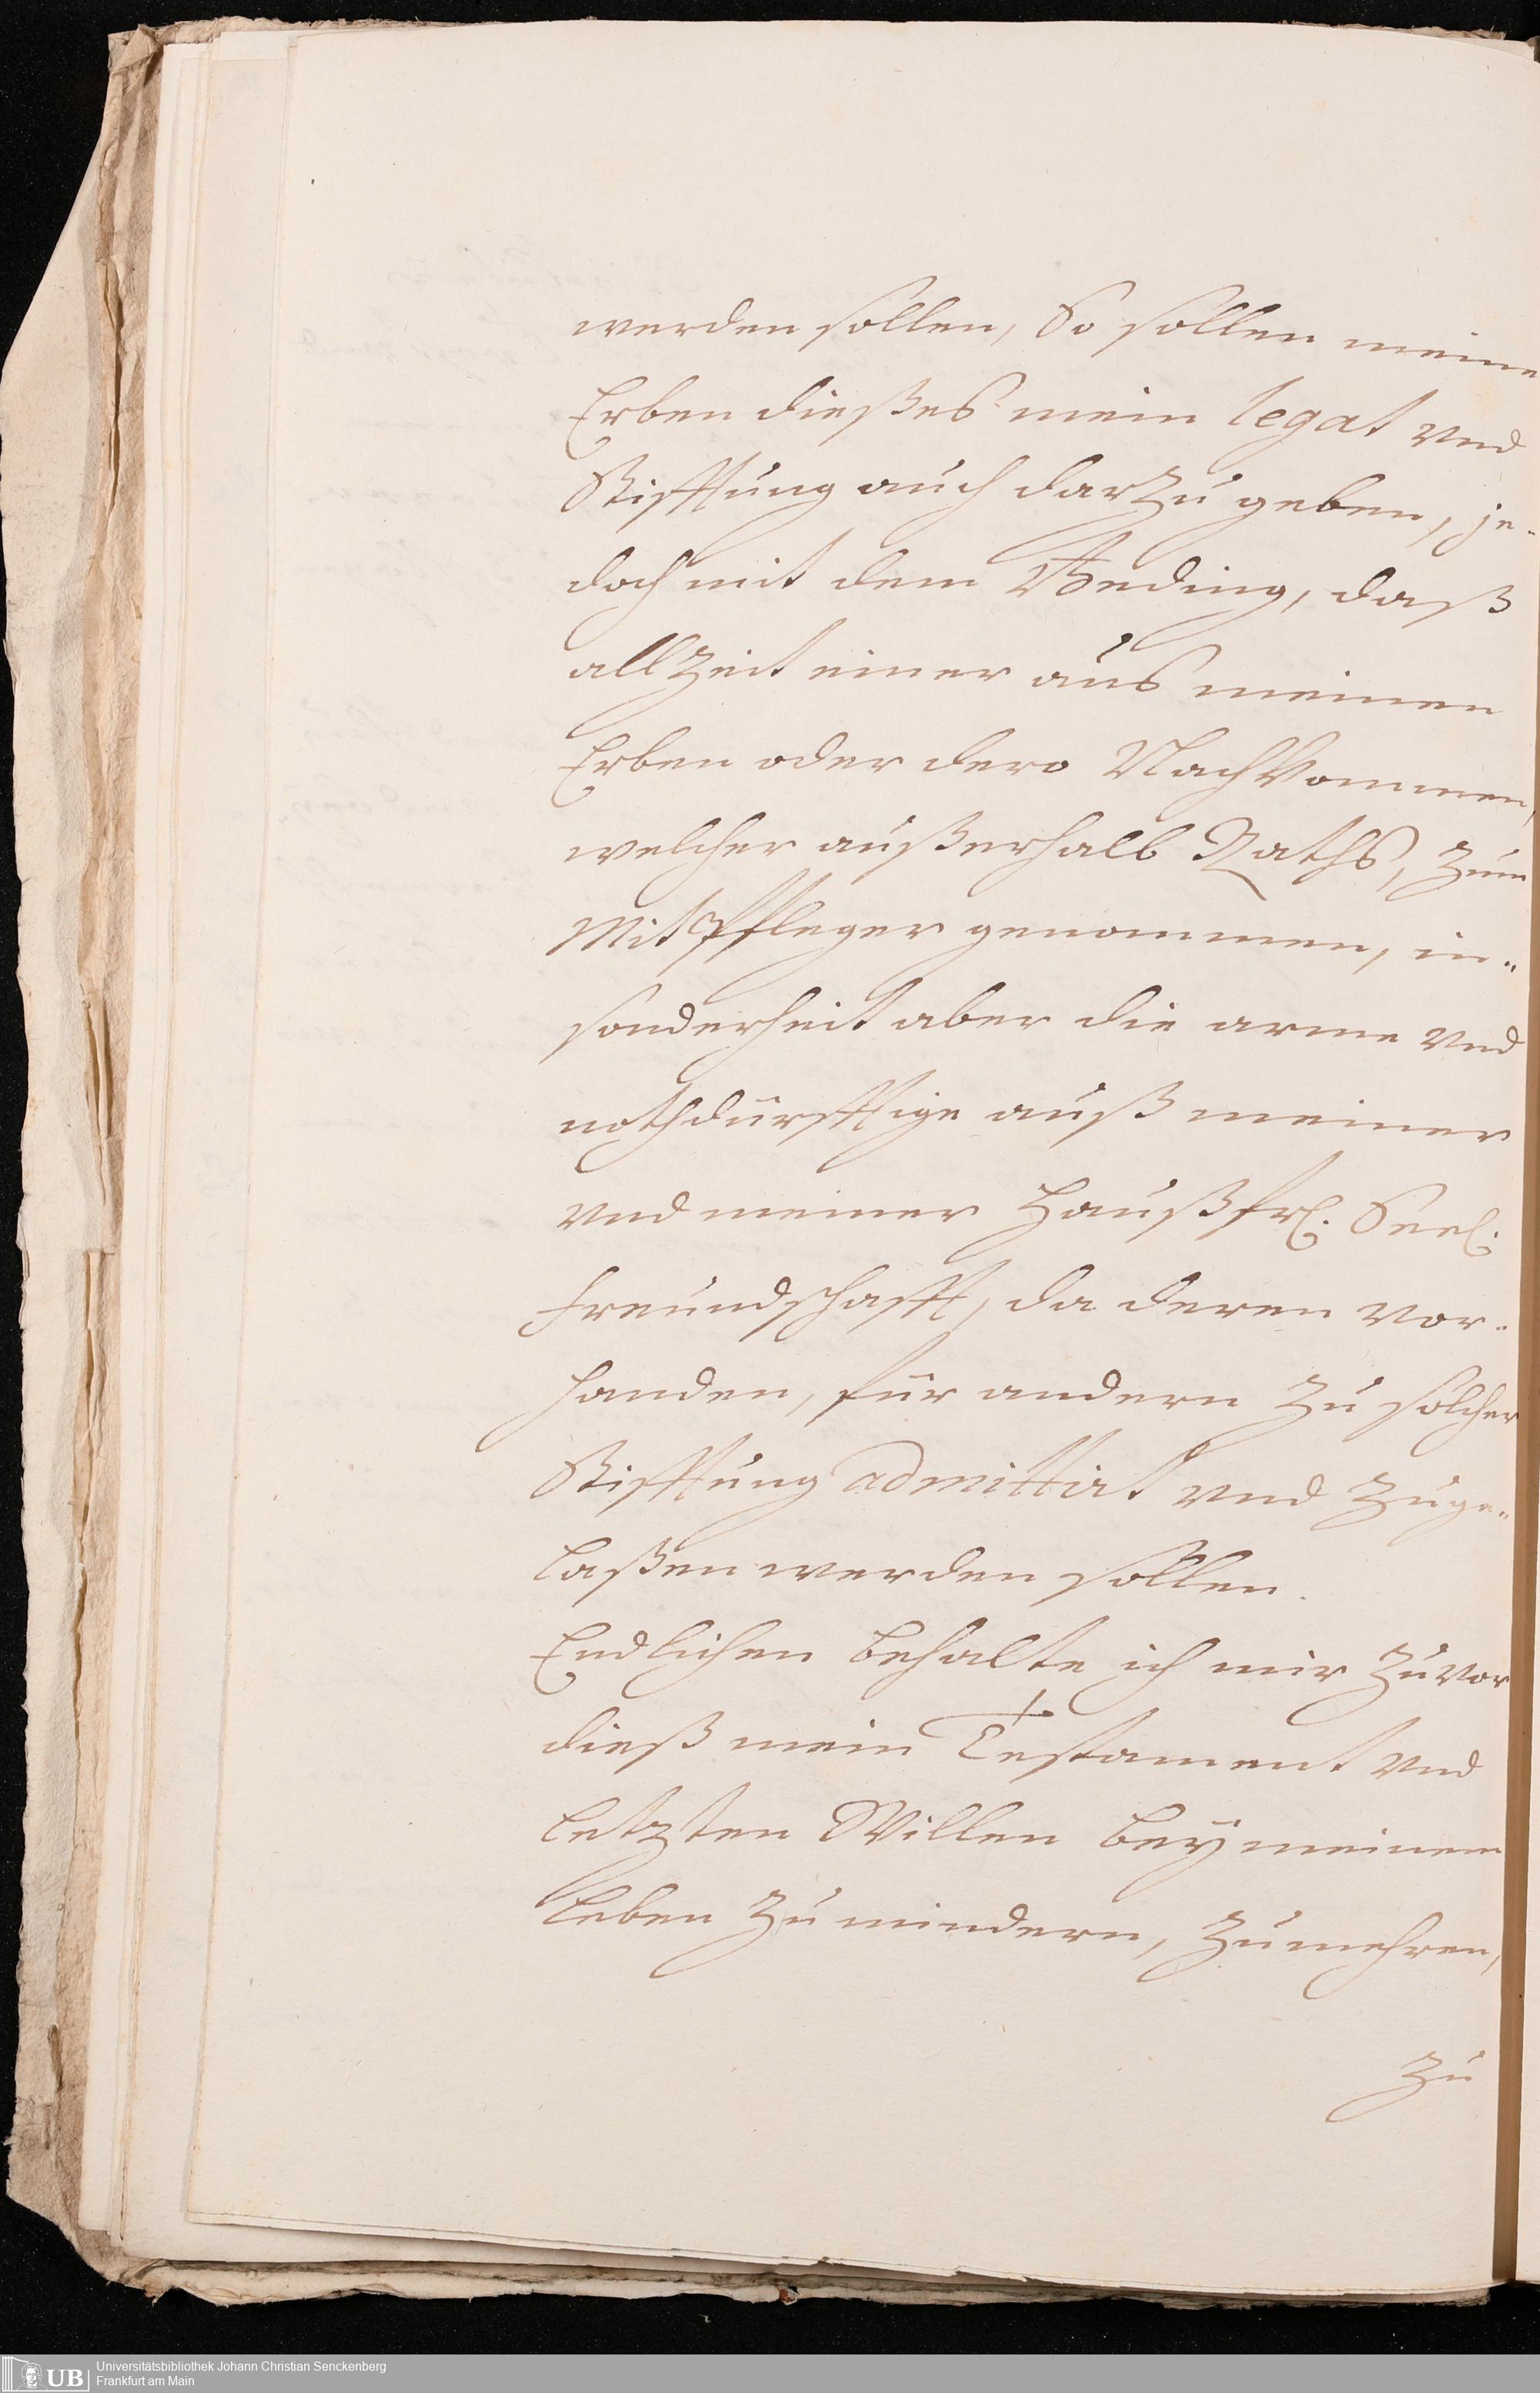 werden sollen, So sollen meine
Erben dießes mein legat vnd
Stifftung auch darzu geben, je-
doch mit dem Beding, daß
allzeit einer aus meinen
Erben oder dero Nachkommen,
welcher außerhalb Raths, zum
Mitpfleger genommen, in-
sonderheit aber die arme vnd
nothdürfftige auß meiner
vnd meiner Haußfr. Seel.
freundschafft, da deren vor-
handen, für andern zu solcher
Stifftung admittirt vnd zuge-
laßen werden sollen.
Endlichen behalte ich mir zuvor
dieß mein Testament vnd
letzten Willen bey meinem
leben zu mindern, zu mehren,
zu
UB
Universitätsbibliothek Johann Christian Senckenberg
Frankfurt am Main